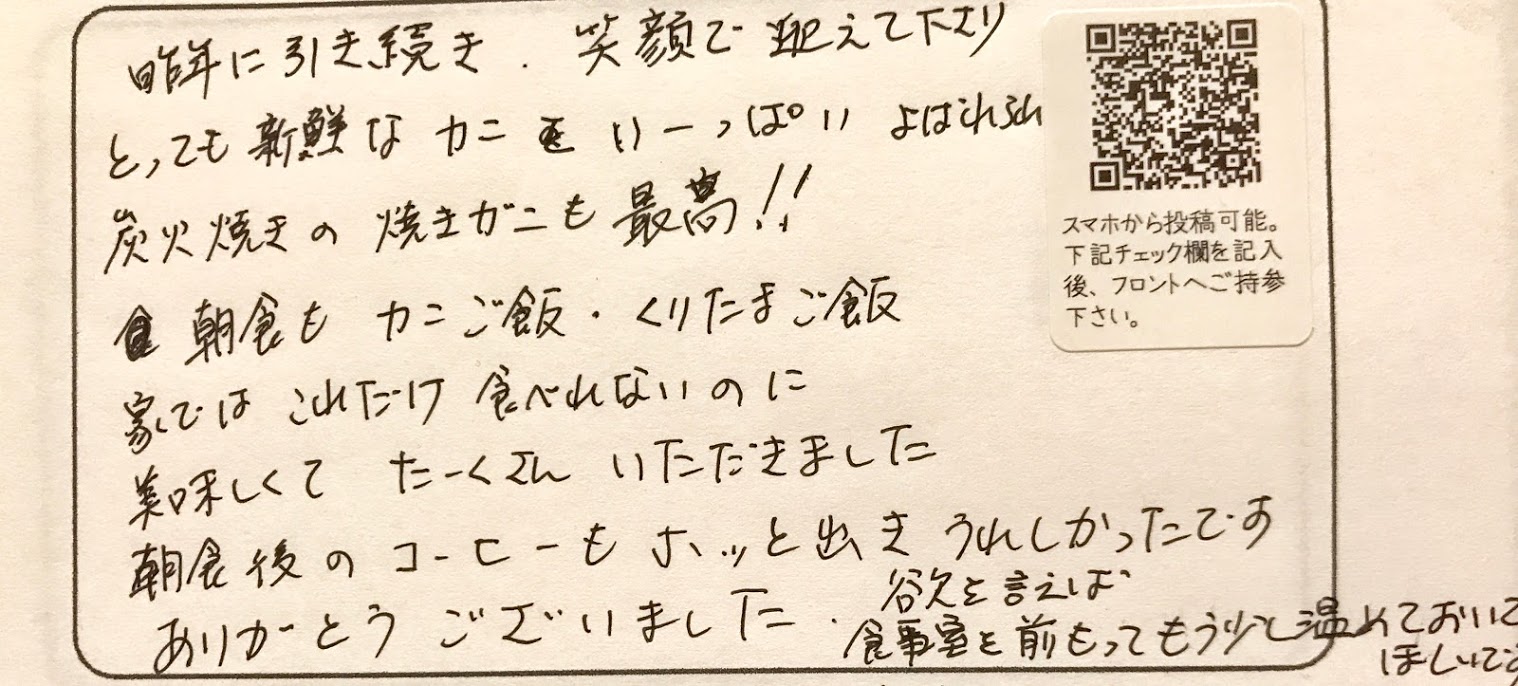 昨年に引き続き、笑顔で迎えて下さり
とっても新鮮なカニをいーっぱいよばれられ
炭火焼きの焼きガニも最高!!
朝食もカニご飯・くりたまご飯
家ではこれだけ食べれないのに
美味しくてたーくさんいただきました
朝食後のコーヒーもホッと出きうれしかったです
ありがとうございました.
欲を言えば
食事室を前もってもう少し温めておいて
ほしいです
スマホから投稿可能。
下記チェック欄を記入
後、フロントへご持参
下さい。